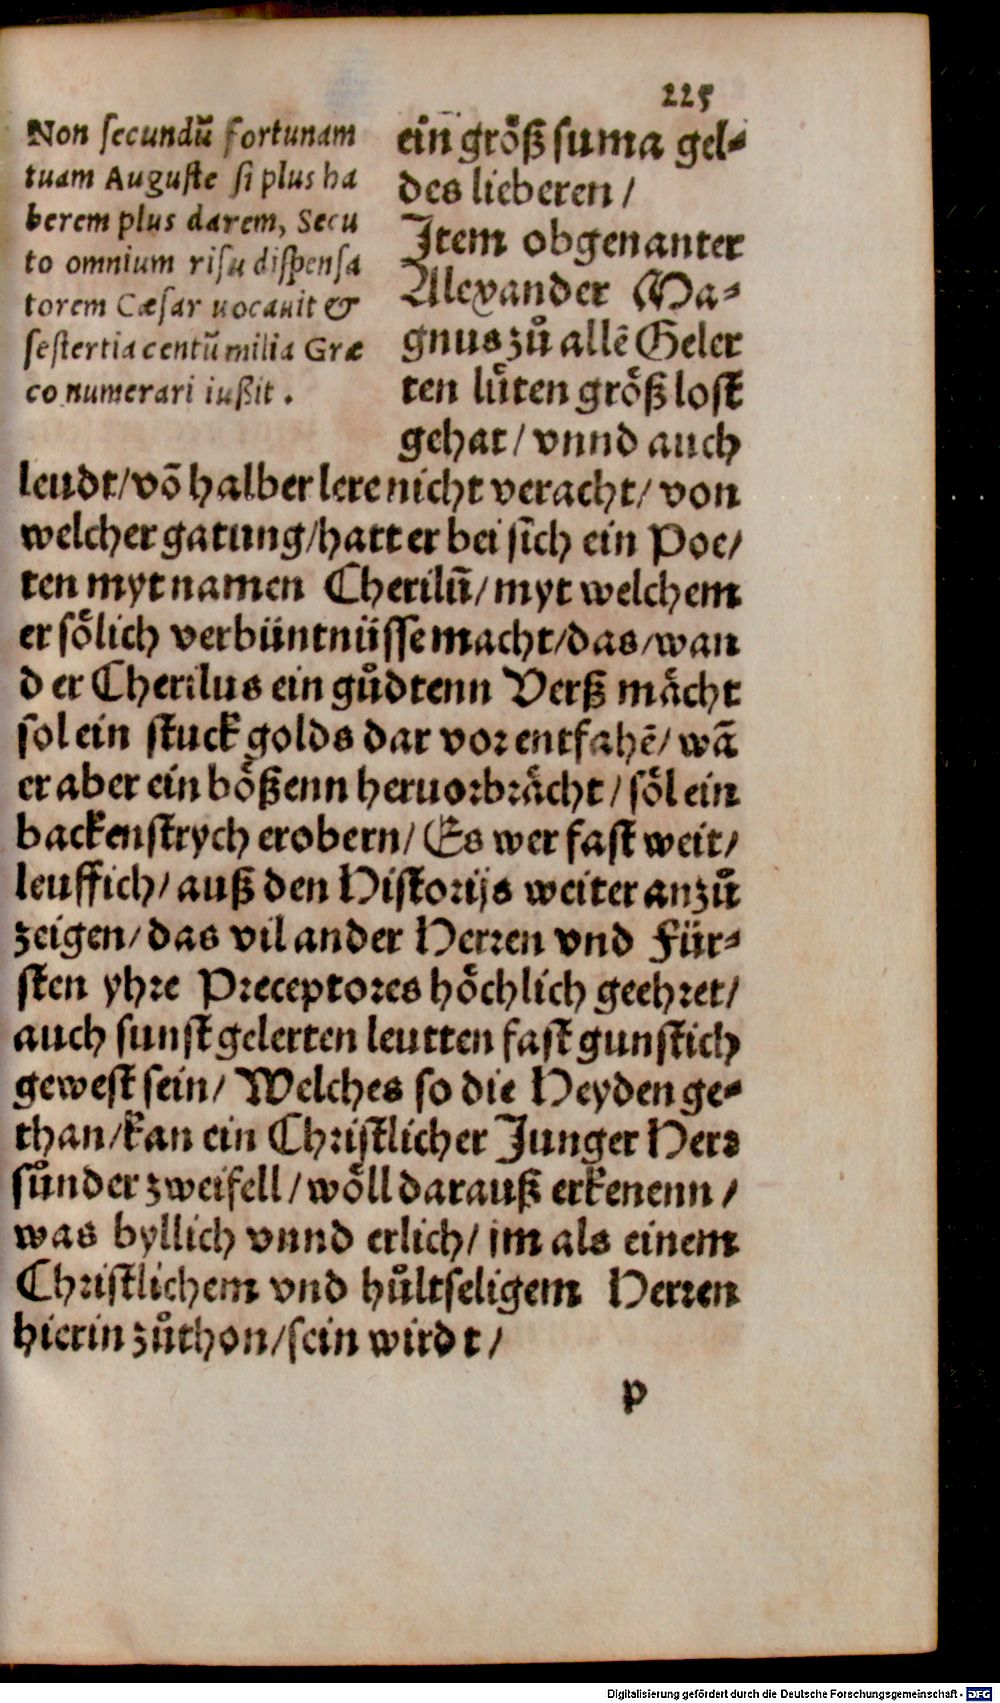 225
Non ſecundū fortunam
tuam Auguſte ſi plus ha
berem plus darem, Secu
to omnium riſu diſpenſa
torem Cæſar uocauit &
ſeſtertia centū milia Græ
co numerari iußit .
ein größ ſuma gel⸗
des lieberen /
Item obgenanter
Alexander Ma⸗
gnus zů allē Geler
ten lůten größ loſt
gehat / vnnd auch
leudt/ vō halber lere nicht veracht/ von
welcher gatung/hatt er bei ſich ein Poe/
ten myt namen Cherilū/ myt welchem
er ſölich verbüntnüſſe macht/das/wan
d er Cherilus ein gůdtenn Verß mächt
ſol ein ſtuck golds dar vor entfahē/ wā
er aber ein bößenn heruorbrächt / ſöl ein
backenſtrych erobern/ Es wer faſt weit/
leuffich/ auß den Hiſtorijs weiter anzů
zeigen/ das vil ander Herren vnd Für⸗
ſten yhre Preceptores höchlich geehret/
auch ſunſt gelerten leutten faſt gunſtich
geweſt ſein/ Welches ſo die Heyden ge⸗
than/kan ein Chriſtlicher Junger Herr
ſůnder zweifell / wöll darauß erkenenn /
was byllich vnnd erlich/ im als einem
Chriſtlichem vnd hůltſeligem Herren
hierin zůthon/ſein wirdt /
p
Digitalisierung gefördert durch die Deutsche Forschungsgemeinschaft - DFG